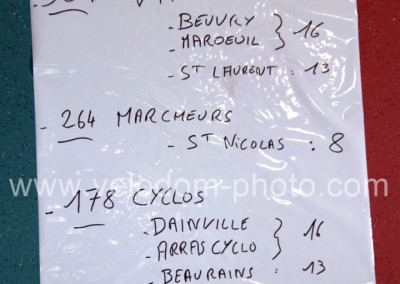 - BEUVRY } 16
- MAROEUIL
- ST LAURENT : 13
- 264 MARCHEURS
- ST NICOLAS : 8
www.velodom-photo.com
- 178 CYCLOS
- DAINVILLE } 16
- ARRAS CYCLO
- BEAURAINS : 13